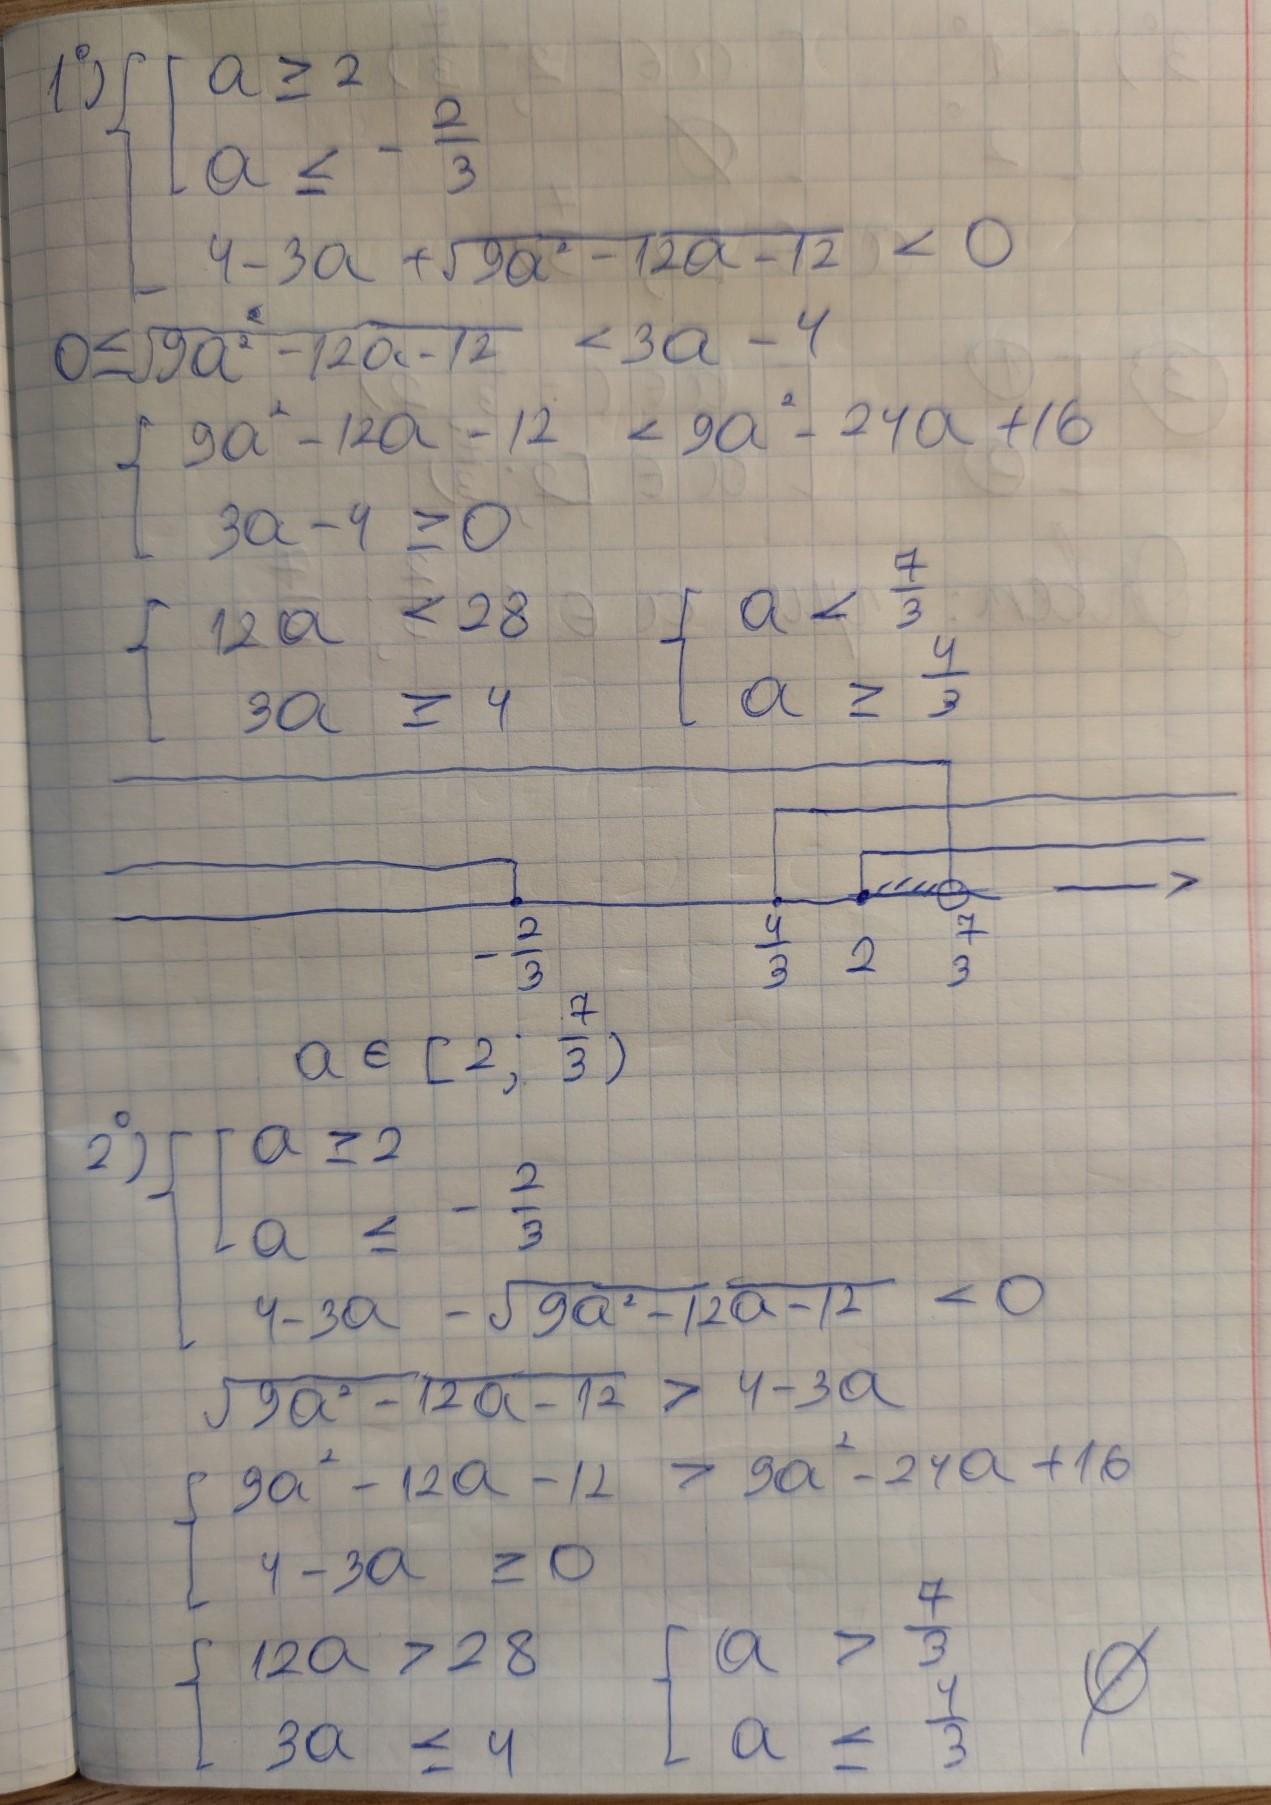 1°) { [ a ≥ 2
a ≤ - 2/3
4-3a + √9a² - 12a - 12 < 0
0 ≤ √9a² - 12a - 12 < 3a - 4
{ 9a² - 12a - 12 < 9a² - 24a + 16
3a - 4 ≥ 0
{ 12a < 28 { a < 7/3
3a ≥ 4 a ≥ 4/3
- 2/3 4/3 2 7/3
a ∈ [2; 7/3)
2°) { [ a ≥ 2
a ≤ - 2/3
4-3a - √9a² - 12a - 12 < 0
√9a² - 12a - 12 > 4-3a
{ 9a² - 12a - 12 > 9a² - 24a + 16
4-3a ≥ 0
{ 12a > 28 { a > 7/3 ∅
3a ≤ 4 a ≤ 4/3